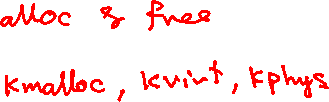 alloc & free
kmalloc, kvirt, kphys